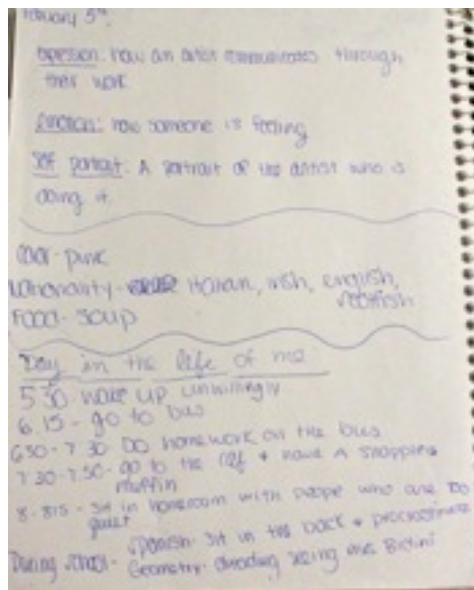 February 5th.
Expression: how an artist communicates through
their work.
Emotion: how someone is feeling
Self portrait: A portrait of the artist who is
doing it.
Color- pink
Nationality- Italian, irish, english,
scottish
Food- soup
Day in the life of me
5:30- wake up unwillingly
6:15- go to bus
6:50-7:30 Do homework on the bus
7:30-7:50- go to the caf + have A snapple +
muffin
8-8:15- sit in homeroom with people who are too
quiet
During school- Spanish- sit in the back + procrastinate
Geometry- dreading seeing mrs